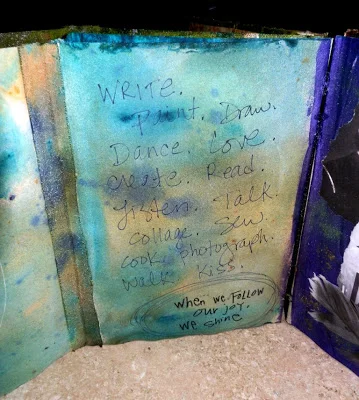 WRITE.
Paint. Draw.
Dance. Love.
create. Read.
Listen. Talk.
collage. Sew.
cook. photograph.
walk. Kiss.
when we follow
our joy.
we shine